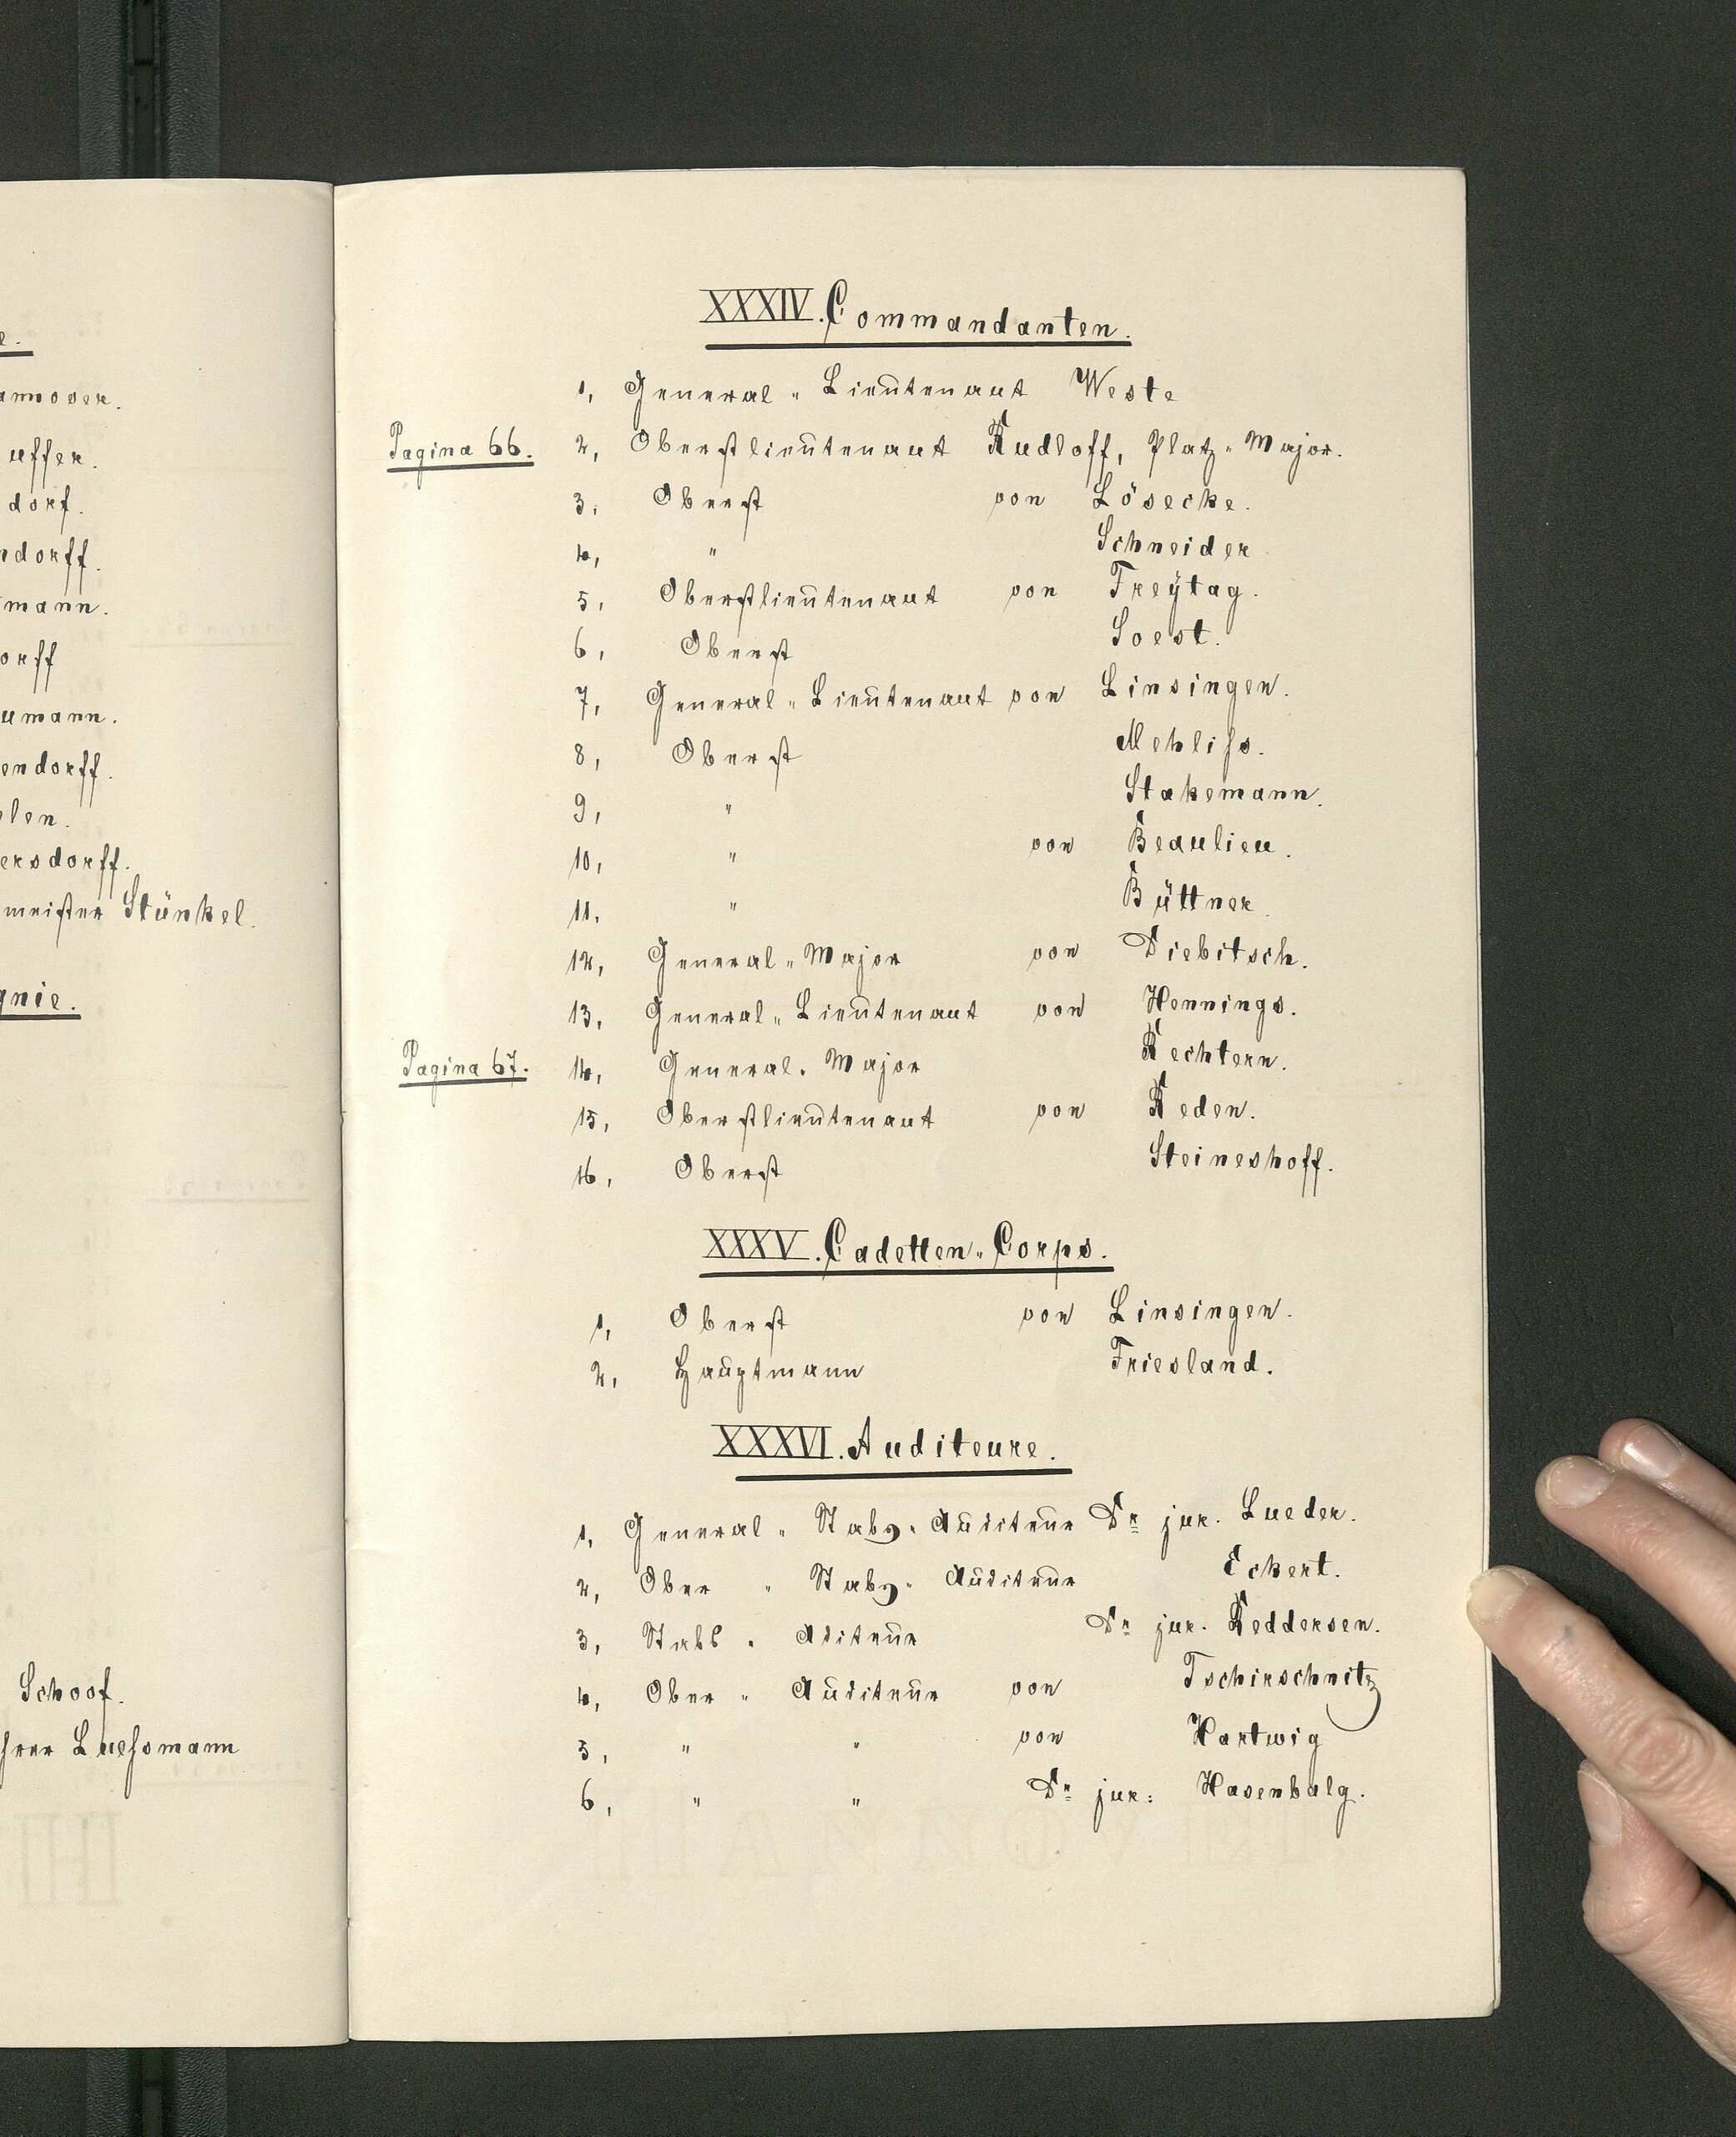 e.
annover.
uffer.
dorf.
ndorff.
mann.
orff
umann.
endorff.
elen.
ersdorff.
meister Stünkel.
gnie.
Schoof.
Luehsmann
XXXIV. Commandanten.
1, General-Lieutenant Weste
Pagina 66. 2, Oberstlieutenant Rudloff, Platz-Major.
3, Oberst von Lösecke.
4, " Schneider
5, Oberstlieutenant von Freÿtag.
6, Oberst Soest.
7, General-Lieutenant von Linsingen.
8, Oberst Mehliss.
9, " Stakemann.
10, " von Beaulieu.
11. " Büttner.
12, General-Major von Diebitsch.
13, General-Lieutenant von Hennings.
Pagina 67. 14, General-Major Rechtern.
15, Oberstlieutenant von Reden.
16, Oberst Steineshoff.
XXXV. Cadetten-Corps.
1, Oberst von Linsingen.
2, Hauptmann Friesland.
XXXVI. Auditeure.
1, General-Stabs-Auditeur Dr jur. Lueder.
2, Ober-Stabs-Auditeur Eckert.
3, Stabs-Aditeur Dr jur. Reddersen.
4, Ober-Auditeur von Tschirschnitz
5, " " von Hartwig
6, " " Dr jur: Hasenbalg.